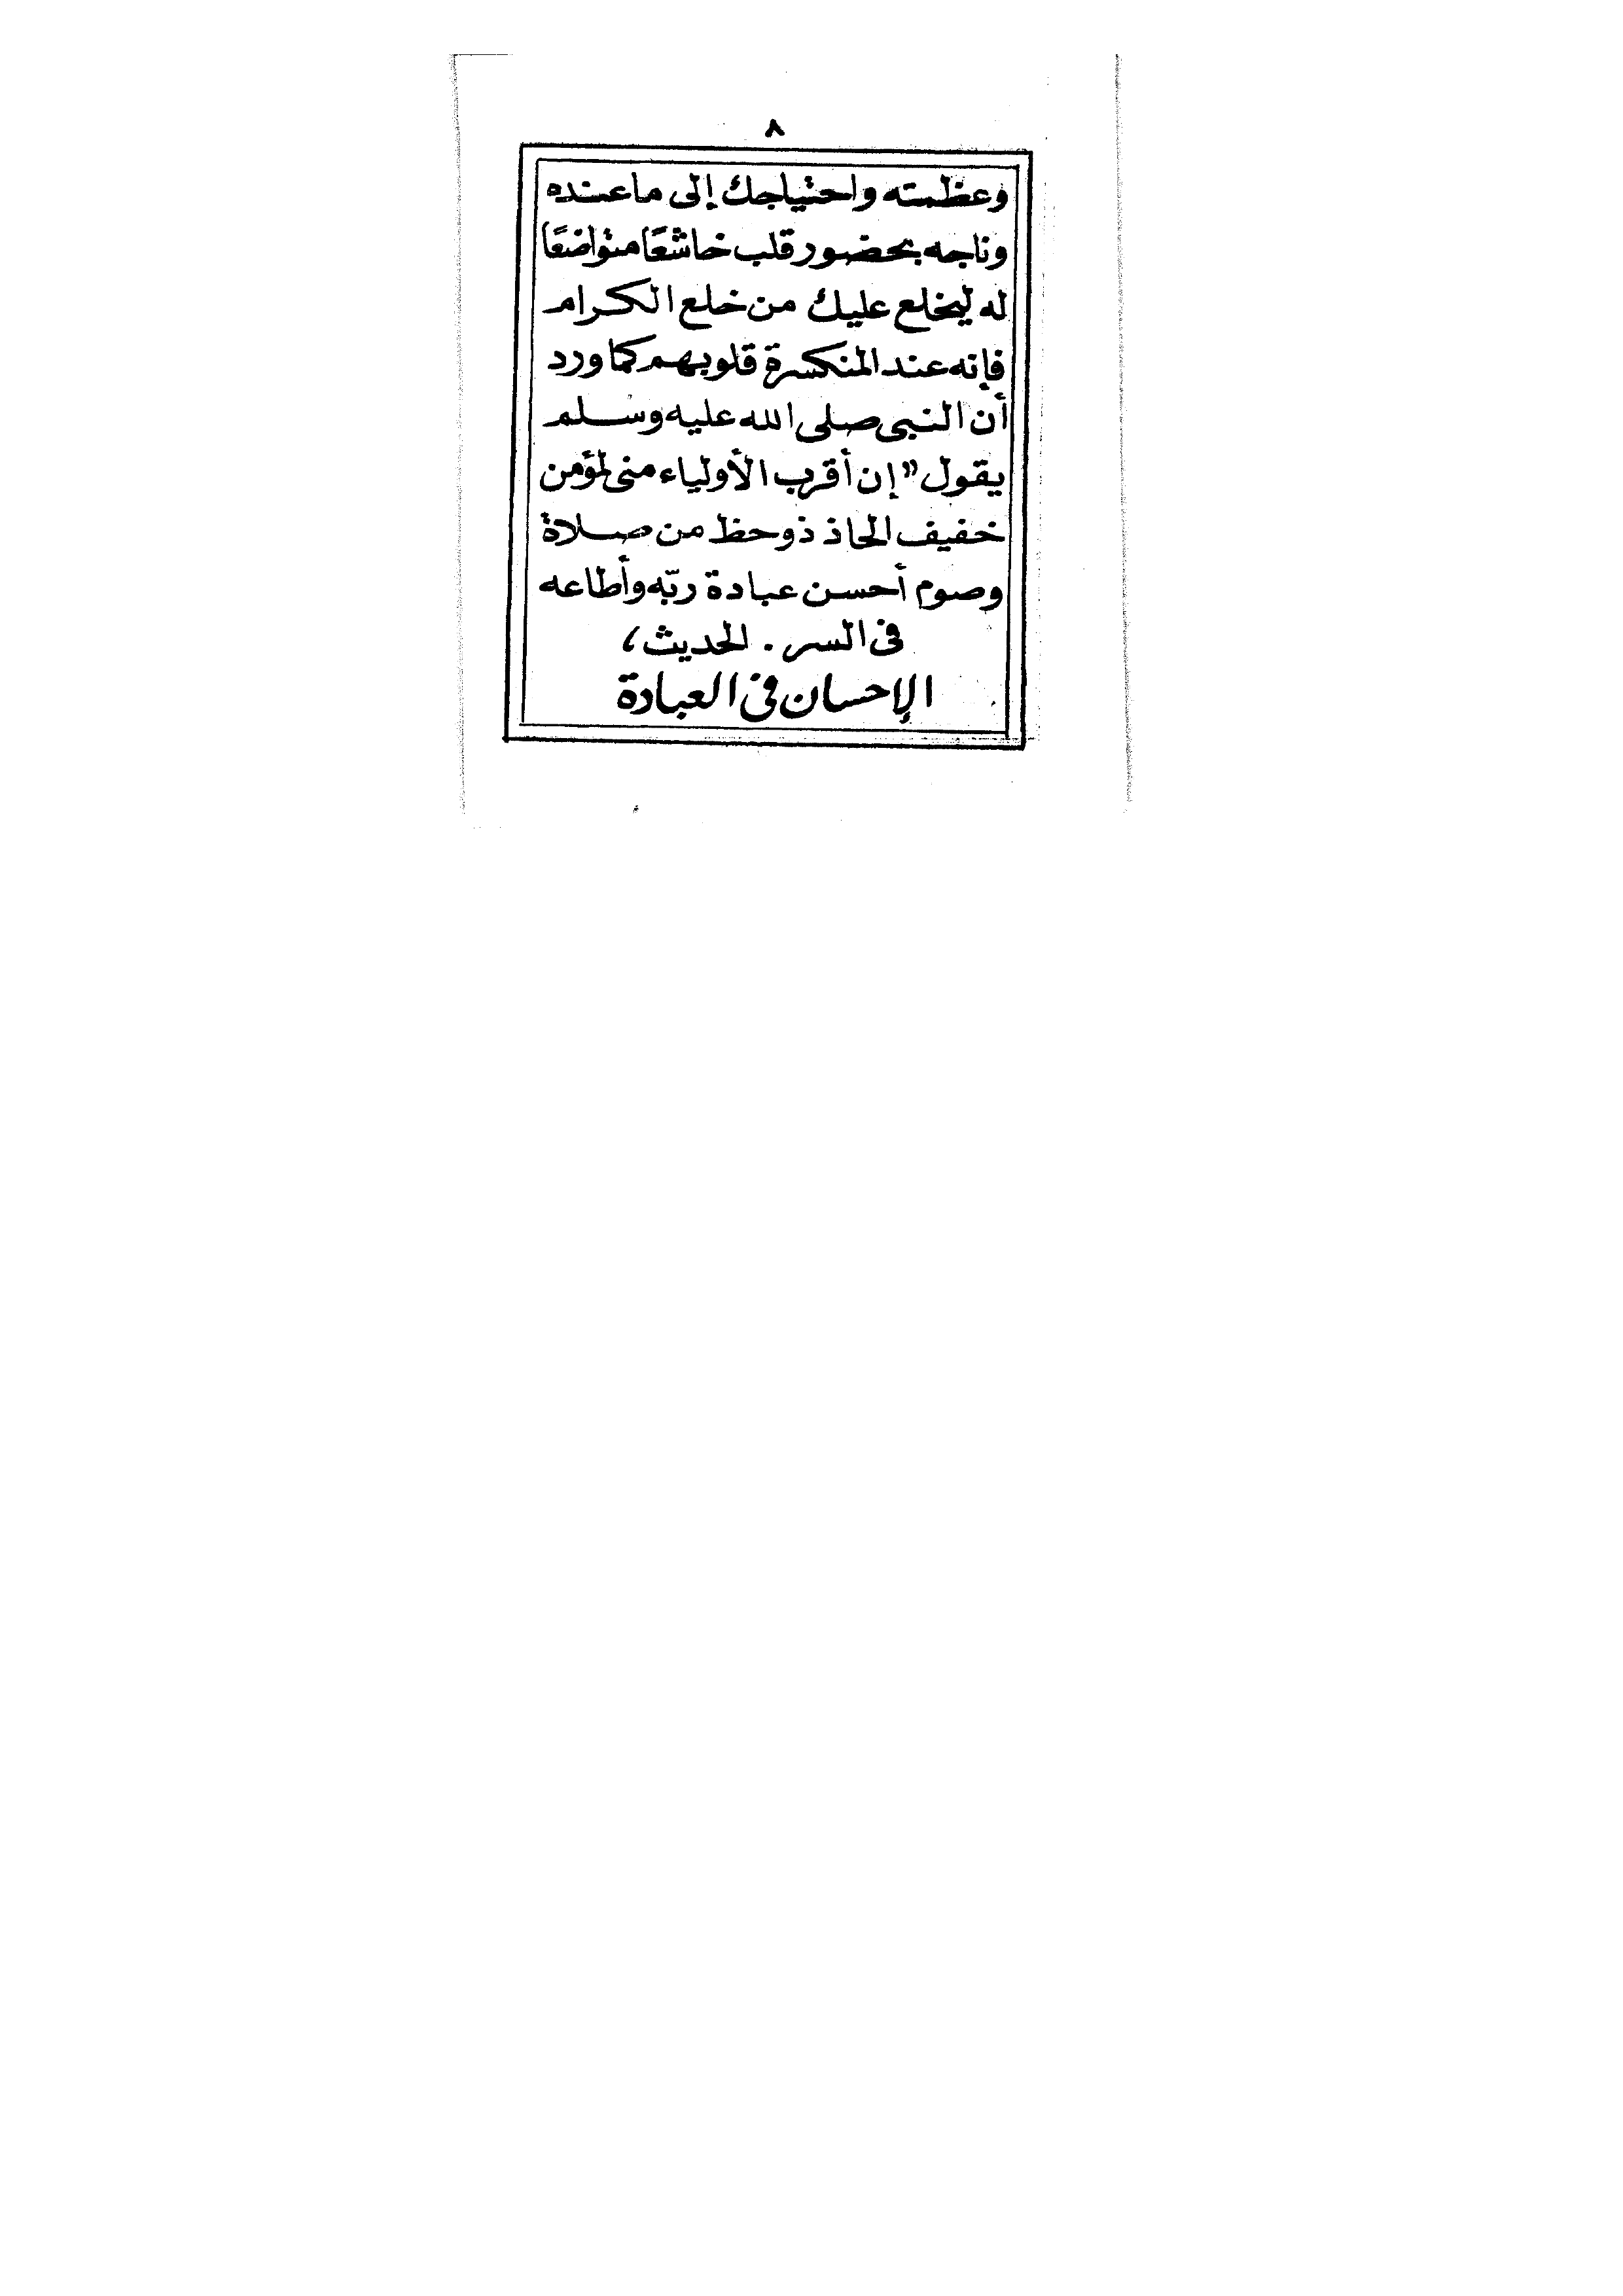 ٨
وعظمته واحتياجك إلى ما عنده
وناجه بحضور قلب خاشعًا متواضعًا
له ليخلع عليك من خلع الكرام
فإنه عند المنكسرة قلوبهم كما ورد
أن النبى صلى الله عليه وسلم
يقول "إن أقرب الأولياء منى لمؤمن
خفيف الحاذ ذو حظ من صلاة
وصوم أحسن عبادة ربّه وأطاعه
فى السر . الحديث،
الإحسان فى العبادة